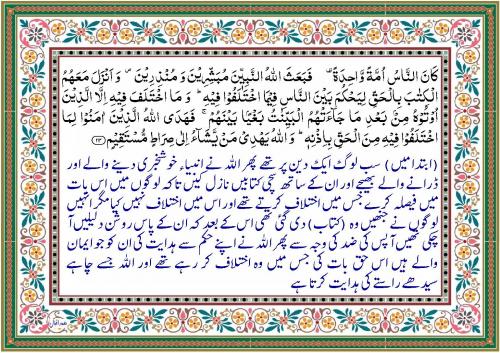 كَانَ النَّاسُ اُمَّةً وَّاحِدَةً ۟ فَبَعَثَ اللّٰهُ النَّبِيّٖنَ مُبَشِّرِيْنَ وَمُنْذِرِيْنَ ۪ وَاَنْزَلَ مَعَهُمُ
الْكِتٰبَ بِالْحَقِّ لِيَحْكُمَ بَيْنَ النَّاسِ فِيْمَا اخْتَلَفُوْا فِيْهِ ؕ وَمَا اخْتَلَفَ فِيْهِ اِلَّا الَّذِيْنَ
اُوْتُوْهُ مِنْۢ بَعْدِ مَا جَآءَتْهُمُ الْبَيِّنٰتُ بَغْيًۢا بَيْنَهُمْ ۚ فَهَدَى اللّٰهُ الَّذِيْنَ اٰمَنُوْا لِمَا
اخْتَلَفُوْا فِيْهِ مِنَ الْحَقِّ بِاِذْنِهٖ ؕ وَاللّٰهُ يَهْدِيْ مَنْ يَّشَآءُ اِلٰى صِرَاطٍ مُّسْتَقِيْمٍ ﴿۲۱۳﴾
(ابتدا میں) سب لوگ ایک دین پر تھے پھر اللہ نے انبیاء خوشخبری دینے والے اور
ڈرانے والے بھیجے اور ان کے ساتھ سچی کتابیں نازل کیں تاکہ لوگوں میں اس بات
میں فیصلہ کرے جس میں اختلاف کرتے تھے اور اس میں اختلاف نہیں کیا مگر انہیں
لوگوں نے جنھیں وہ (کتاب) دی گئی تھی اس کے بعد کہ ان کے پاس روشن دلیلیں آ
چکی تھیں آپس کی ضد کی وجہ سے پھر اللہ نے اپنے حکم سے ہدایت کی ان کو جو ایمان
والے ہیں اس حق بات کی جس میں وہ اختلاف کر رہے تھے اور اللہ جسے چاہے
سیدھے راستے کی ہدایت کرتا ہے